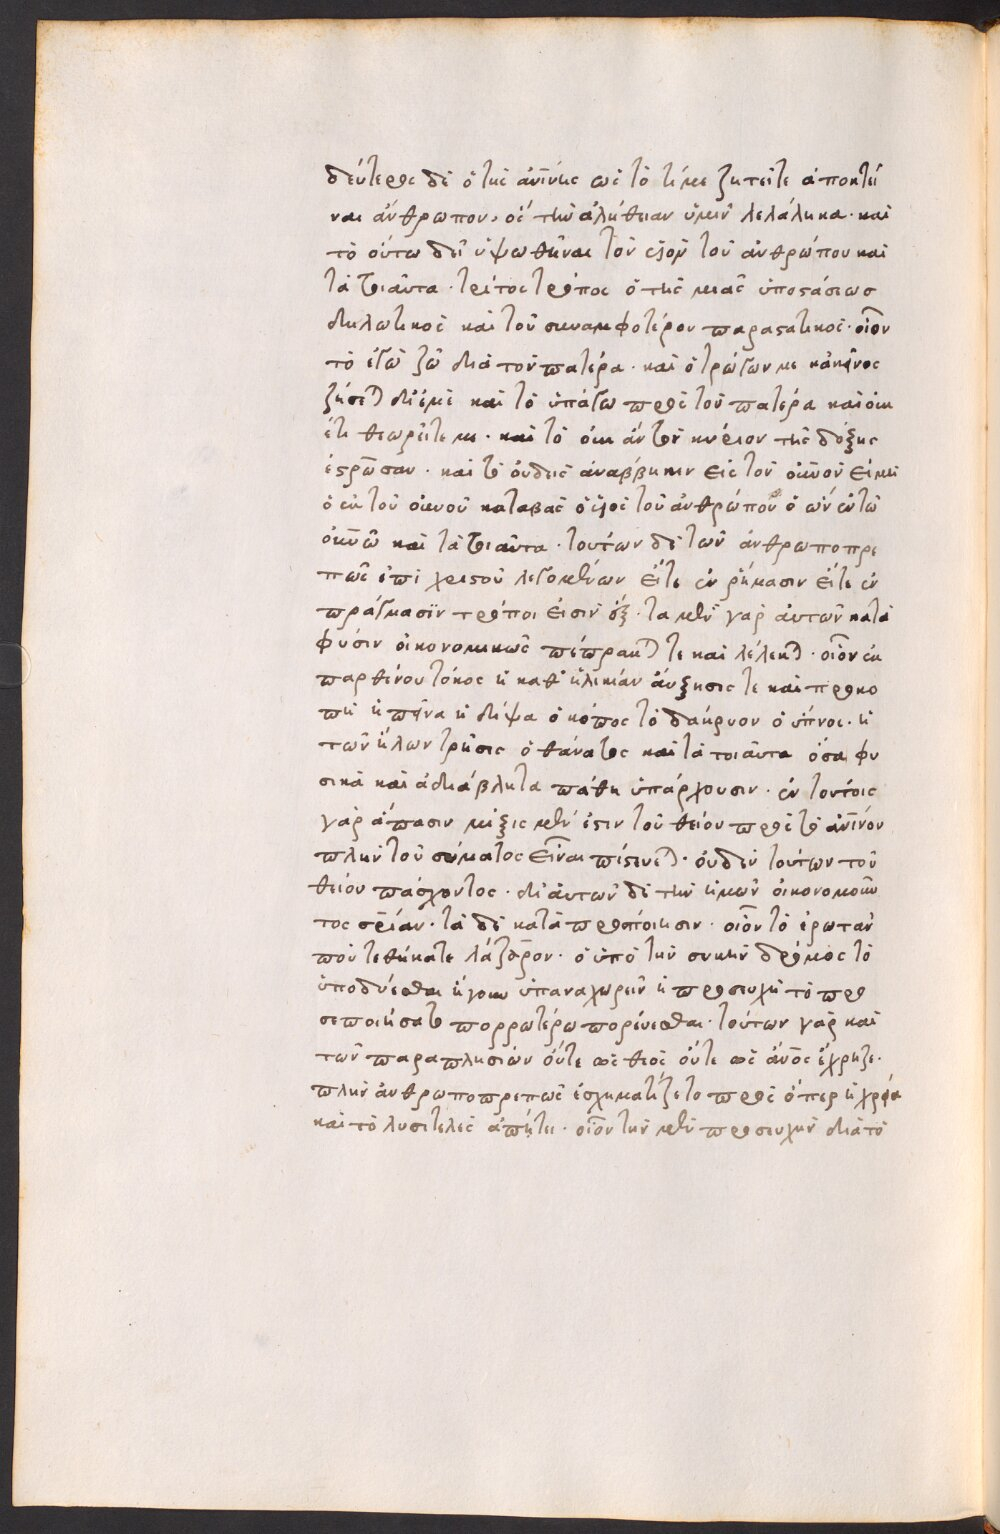 δεύτερος δὲ ὁ τῆς ἀνίνης ὡς τὸ τί με ζητεῖτε ἀποκτεί
ναι ἄνθρωπον, ὃς τὴν ἀλήθειαν ὑμῖν λελάληκα· καὶ
τὸ οὕτω δεῖ ὑψωθῆναι τὸν υἱὸν τοῦ ἀνθρώπου καὶ
τὰ τοιαῦτα· τρίτος τρόπος ὁ τῆς μιᾶς ὑποστάσεως
δηλωτικὸς καὶ τοῦ συναμφοτέρου παραστατικός· οἷον
τὸ ἐγὼ ζῶ διὰ τὸν πατέρα· καὶ ὁ τρώγων με κἀκεῖνος
ζήσει δι' ἐμὲ καὶ τὸ ὑπάγω πρὸς τὸν πατέρα καὶ οὐκ
ἔτι θεωρεῖτε με· καὶ τὸ οὐκ ἂν τὸν κύριον τῆς δόξης
ἐστρωσαν· καὶ τὸ οὐδεὶς ἀναβέβηκεν εἰς τὸν οὐνὸν εἰ μὴ
ὁ ἐκ τοῦ οὐνοῦ καταβὰς ὁ υἱὸς τοῦ ἀνθρώπου ὁ ὢν ἐν τῶ
οὐνῶ καὶ τὰ τοιαῦτα· τούτων δὲ τῶν ἀνθρωποπρε
πῶς ἐπὶ χριστοῦ λεγομένων εἴτε ἐν ῥήμασιν εἴτε ἐν
πράγμασϊν τρόποι εἰσὶν ἕξ· τὰ μὲν γὰρ αὐτῶν κατὰ
φύσιν οἰκονομικῶς πέπρακται τε καὶ λέλεκται· οἷον ἐκ
παρθένου τόκος ἡ καθ' ἡλικίαν αὔξησις τε καὶ προκο
πὴ ἡ πεῖνα ἡ δίψα ὁ κόπος τὸ δάκρυον ὁ ὕπνος· ἡ
τῶν ἥλων τρῆσις ὁ θάνατος καὶ τὰ τοιαῦτα ὅσα φυ
σικὰ καὶ ἀδιάβλητα πάθη ὑπάρχουσιν· ἐν τούτοις
γὰρ ἅπασιν μίξις μέν ἐστιν τοῦ θείου πρὸς τὸ ἀνίνον
πλὴν τοῦ σώματος εἶναι πιστεύεται· οὐδὲν τούτων τοῦ
θείου πάσχοντος· δι' αὐτῶν δὲ τὴν ἡμῶν οἰκονομοῦν
τος σρίαν· τὰ δὲ κατὰ προσποίησιν· οἷον τὸ ἐρωτᾶν
ποῦ τεθήκατε λάζαρον· ὁ ὑπὸ τὴν συκῆν δρόμος τὸ
ὑποδύεσθαι ἤγουν ὑπαναχωρεῖν ἡ προσευχὴ τὸ προ
σεποιήσατο πορρωτέρω πορεύεσθαι· τούτων γὰρ καὶ
τῶν παραπλησιών οὔτε ὡς θεὸς οὔτε ὡς ἄνος ἔχρηζε·
πλὴν ἀνθρωποπρεπῶς ἐσχηματίζετο πρὸς ὅπερ ἡ χρεία
καὶ τὸ λυσιτελὲς ἀπήτει· οἷον τὴν μὲν προσευχὴν διὰ τὸ